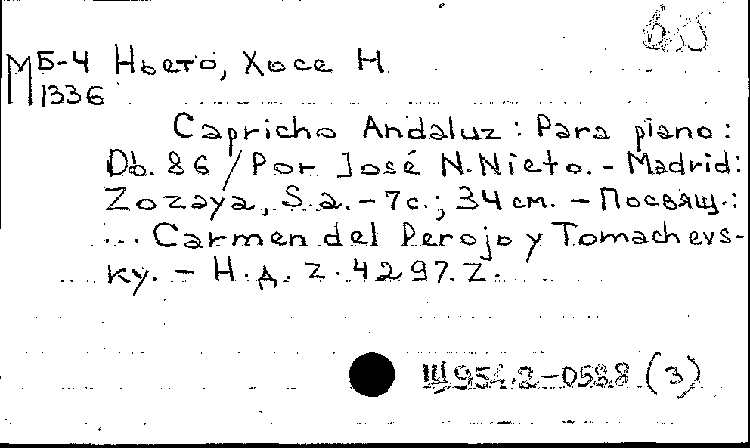 М Б-4 Ньето, Хосе Н
1336
Capricho Andaluz: Para piano:
Ob. 86 / Por José N. Nieto. - Madrid:
Zozaya, S.a. - 7 с.; 34 см. - Посвящ.:
... Carmen del Perojo y Tomachevs-
ky. - Н.д. Z. 4297. Z.
Щ954.2-0588 (3)